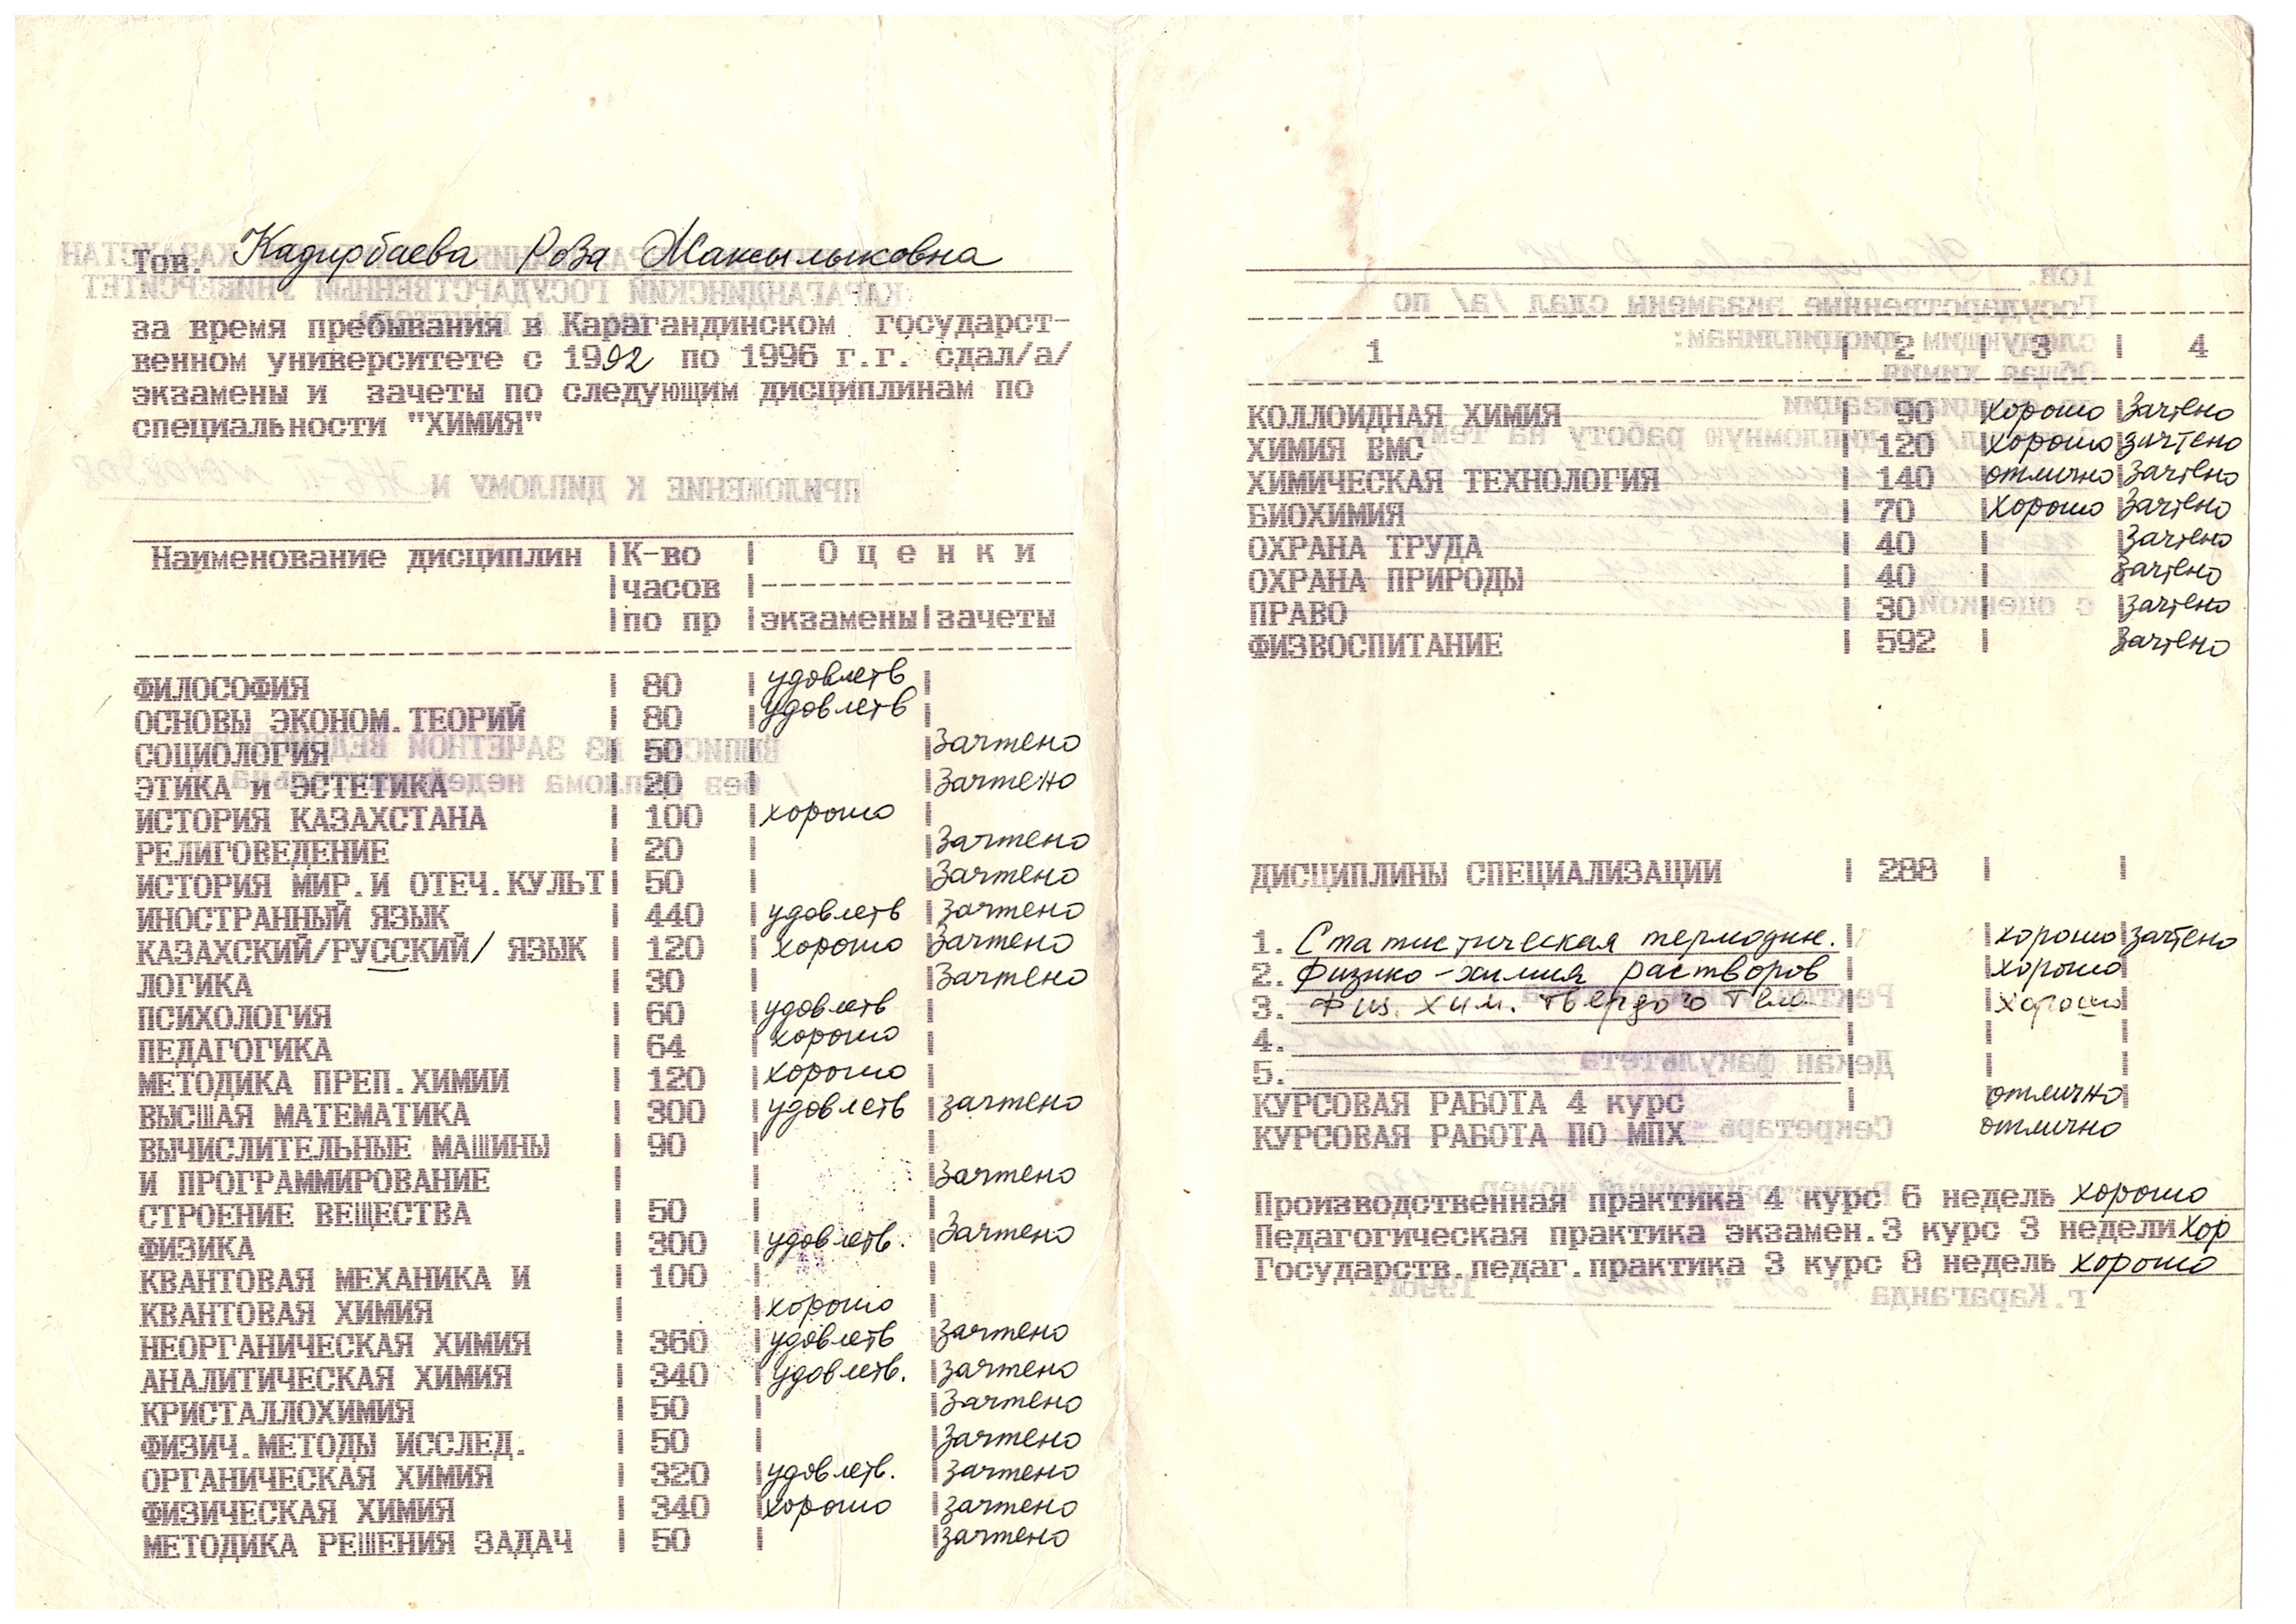 Тов. Кадирбаева Роза Максылыковна
за время пребывания в Карагандинском государст-
венном университете с 1992 по 1996 г.г. сдал/а/
экзамены и зачеты по следующим дисциплинам по
специальности "ХИМИЯ"
Наименование дисциплин | К-во | О ц е н к и
| часов |
| по пр | экзамены | зачеты
ФИЛОСОФИЯ | 80 | удовлетв |
ОСНОВЫ ЭКОНОМ.ТЕОРИЙ | 80 | удовлетв |
СОЦИОЛОГИЯ | 50 | | Зачтено
ЭТИКА и ЭСТЕТИКА | 20 | | Зачтено
ИСТОРИЯ КАЗАХСТАНА | 100 | хорошо |
РЕЛИГОВЕДЕНИЕ | 20 | | Зачтено
ИСТОРИЯ МИР.И ОТЕЧ.КУЛЬТ | 50 | | Зачтено
ИНОСТРАННЫЙ ЯЗЫК | 440 | удовлетв | Зачтено
КАЗАХСКИЙ/РУССКИЙ/ ЯЗЫК | 120 | хорошо | Зачтено
ЛОГИКА | 30 | | Зачтено
ПСИХОЛОГИЯ | 60 | удовлетв |
ПЕДАГОГИКА | 64 | хорошо |
МЕТОДИКА ПРЕП.ХИМИИ | 120 | хорошо |
ВЫСШАЯ МАТЕМАТИКА | 300 | удовлетв | зачтено
ВЫЧИСЛИТЕЛЬНЫЕ МАШИНЫ | 90 | |
И ПРОГРАММИРОВАНИЕ | | | Зачтено
СТРОЕНИЕ ВЕЩЕСТВА | 50 | |
ФИЗИКА | 300 | удовлетв. | Зачтено
КВАНТОВАЯ МЕХАНИКА И | 100 | |
КВАНТОВАЯ ХИМИЯ | | хорошо |
НЕОРГАНИЧЕСКАЯ ХИМИЯ | 360 | удовлетв | Зачтено
АНАЛИТИЧЕСКАЯ ХИМИЯ | 340 | удовлетв. | зачтено
КРИСТАЛЛОХИМИЯ | 50 | | Зачтено
ФИЗИЧ.МЕТОДЫ ИССЛЕД. | 50 | | Зачтено
ОРГАНИЧЕСКАЯ ХИМИЯ | 320 | удовлетв. | зачтено
ФИЗИЧЕСКАЯ ХИМИЯ | 340 | хорошо | зачтено
МЕТОДИКА РЕШЕНИЯ ЗАДАЧ | 50 | | зачтено
1 | 2 | 3 | 4
КОЛЛОИДНАЯ ХИМИЯ | 90 | хорошо | Зачтено
ХИМИЯ ВМС | 120 | хорошо | зачтено
ХИМИЧЕСКАЯ ТЕХНОЛОГИЯ | 140 | отлично | Зачтено
БИОХИМИЯ | 70 | хорошо | Зачтено
ОХРАНА ТРУДА | 40 | | Зачтено
ОХРАНА ПРИРОДЫ | 40 | | Зачтено
ПРАВО | 30 | | Зачтено
ФИЗВОСПИТАНИЕ | 592 | | Зачтено
ДИСЦИПЛИНЫ СПЕЦИАЛИЗАЦИИ | 288 | |
1. Статистическая термодин. | | хорошо | зачтено
2. Физико-химия растворов | | хорошо |
3. Физ. хим. твердого тела | | хорошо |
4. | | |
5. | | |
КУРСОВАЯ РАБОТА 4 курс | отлично |
КУРСОВАЯ РАБОТА ПО МПХ отлично
Производственная практика 4 курс 6 недель хорошо
Педагогическая практика экзамен.3 курс 3 недели хор
Государств.педаг.практика 3 курс 8 недель хорошо